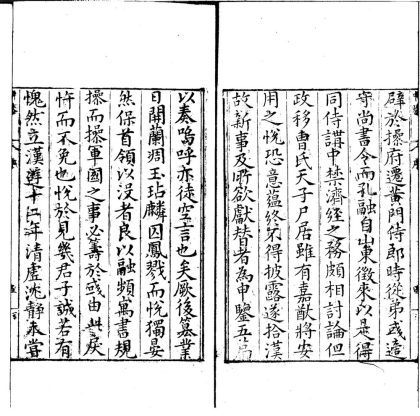 辟於操府遷黃門侍郎時從弟彧遠
守尚書令而孔融自山東徵來以是得
同侍講中禁濟經之務頗相討論但
政移曹氏天子尸居雖有嘉猷將安
用之悅恐意蘊終不得披露遂拾漢
故新事及所欲獻替者為申鑒五篇
以奏嗚呼亦徒空言也矣厥後篡業
日開蘭凋玉玷麟囚鳳戮而悅獨晏
然保首領以沒者良以融頻寓書規
操而操軍國之事必籌於彧由此戾
忤而不免也悅於見幾君子誠若有
愧然立漢籍十二年清虛沈靜未嘗